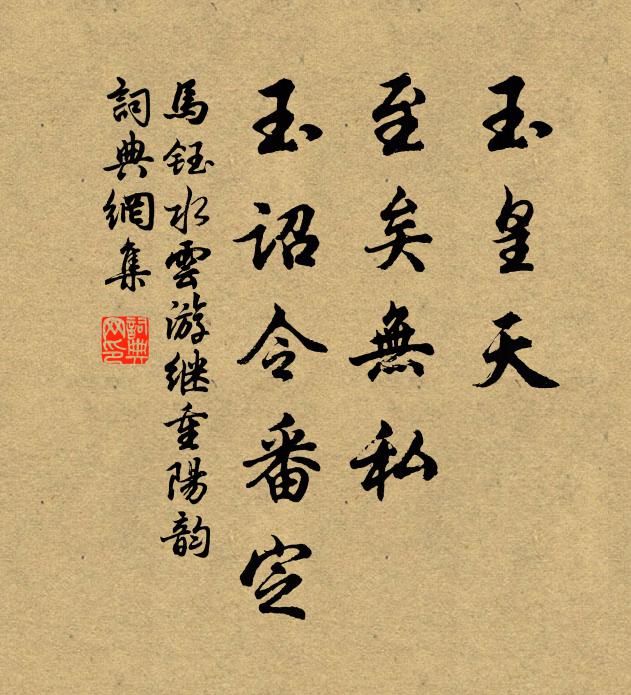 玉皇天
至矣無私
玉詔令番定
馬鈺水雲游继重陽韵
詞典網集
詞典网印